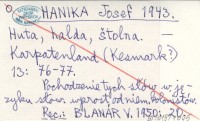 HANIKA Josef 1943.
Huta, halda, štolna. –
Karpatenland (Kesmark?)
13: 76-77.
Pochodzenie tych słów w ję-
zyku słow. wprost od niem. kolonistów.
Rec.: BLANÁR V. 1950: 20.